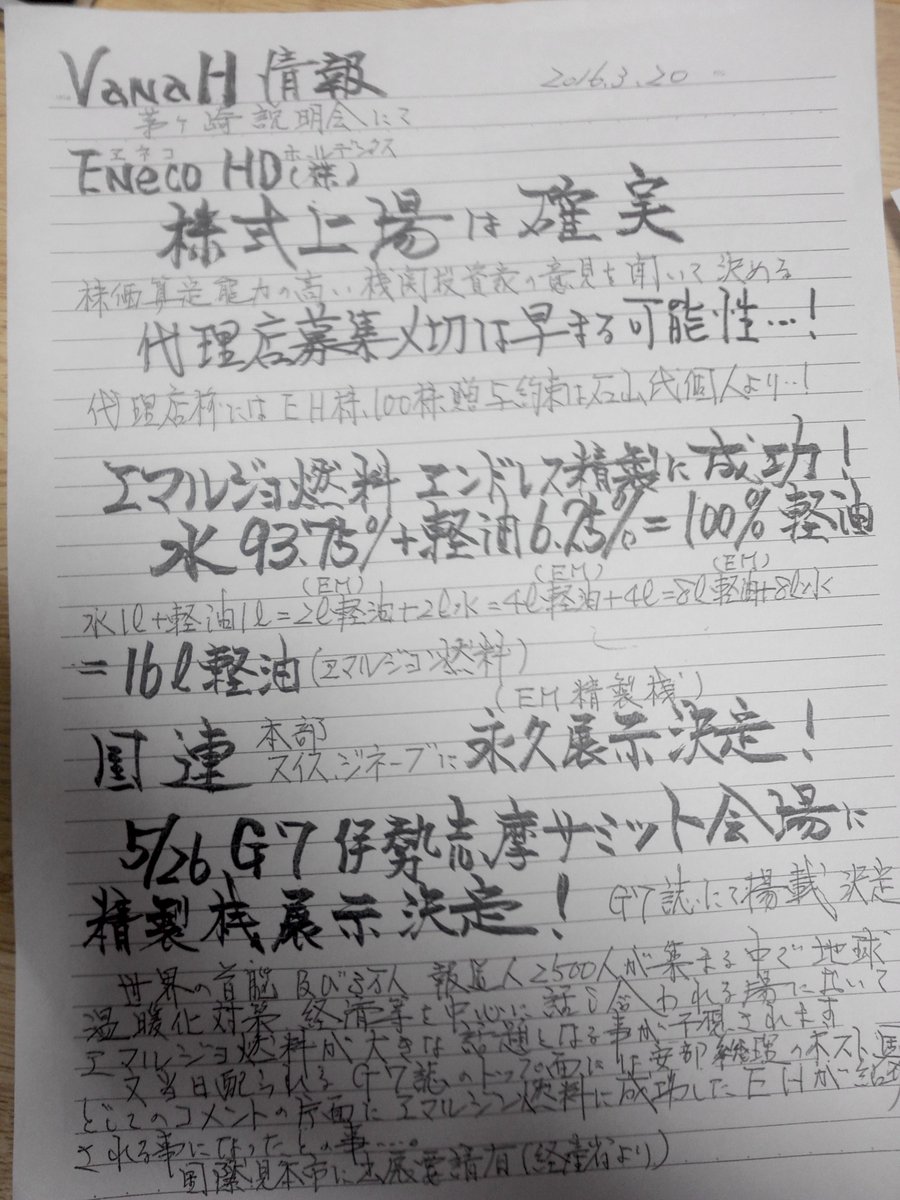 VanaH 情報
2016.3.20
茅ヶ崎説明会にて
エネコ ホールディングス
ENeco HD(株)
株式上場は確実
株価算定能力の高い機関投資家の意見を聞いて決める
代理店募集〆切は早まる可能性…!
代理店様にはEH株、100株贈与約束は石山代個人より…!
エマルジョ燃料 エンドレス精製に成功!
水93.75%+軽油6.25%=100%軽油
(EM) (EM) (EM)
水1ℓ+軽油1ℓ=2ℓ軽油+2ℓ水=4ℓ軽油+4ℓ=8ℓ軽油+8ℓ水
=16ℓ軽油(エマルジョン燃料)
(EM精製機)
国連 本部 スイス、ジネーブに 永久展示決定!
5/26 G7伊勢志摩サミット会場に
精製機展示決定! G7誌にて掲載決定
世界の首脳及び3万人 報道人2500人が集まる中で地球
温暖化対策 経済等を中心に話し合われる場において
エマルジョ燃料が大きな話題となる事が予想されます
又当日配られるG7誌のトップ面には安部総理のホスト国
としてのコメントの片面にエマルジョン燃料に成功したEHが
される事になったとの事…。
国際見本市に出展要請有(経産省より)